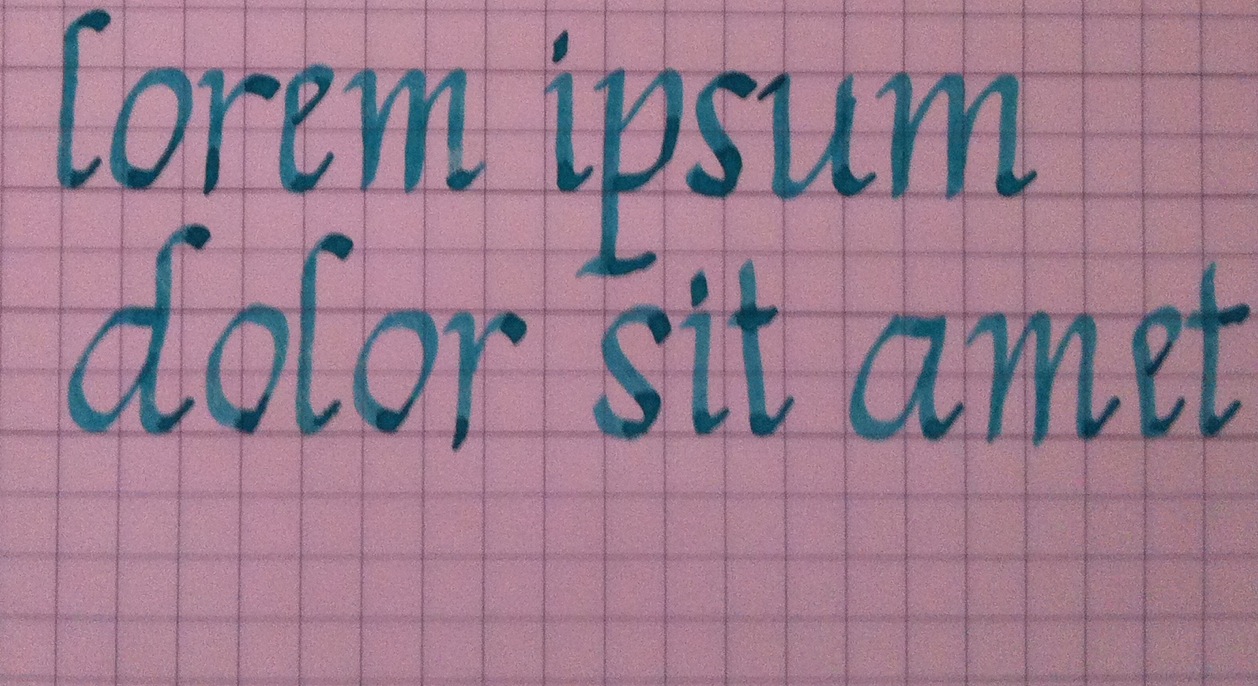 lorem ipsum
dolor sit amet